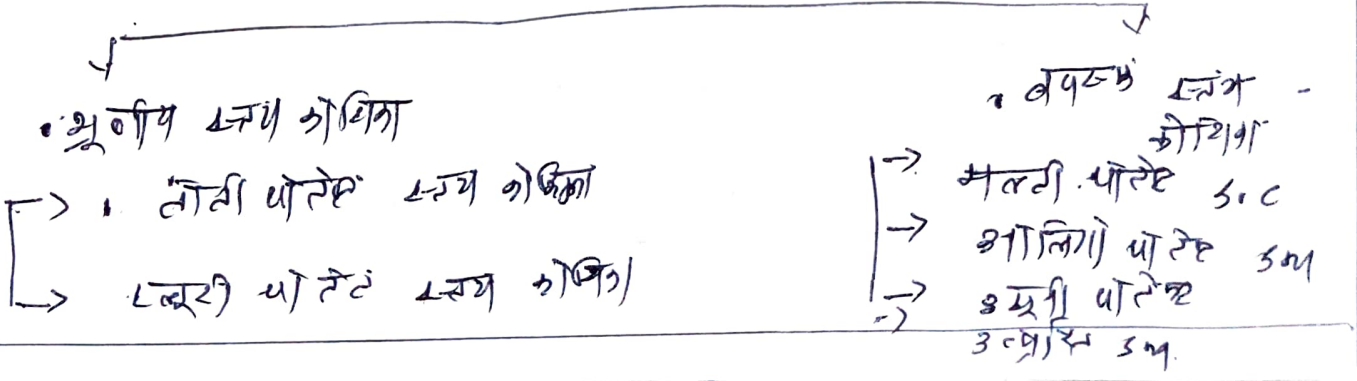 • भ्रूणीय स्तंभ कोशिका
• तोती पोटेंट स्तंभ कोशिका
प्लूरी पोटेंट स्तंभ कोशिका
• वयस्क स्तंभ -
कोशिका
मल्टी पोटेंट S.C
ओलिगो पोटेंट
यूनी पोटेंट